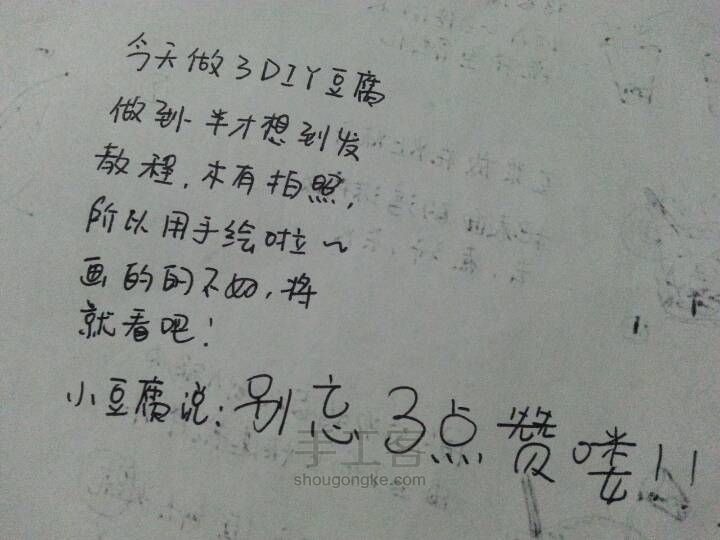 今天做了DIY豆腐
做到一半才想到发
教程,木有拍照,
所以用手绘啦~
画的的不好,将
就看吧!
小豆腐说:别忘了点赞喽!!
手工客
shougongke.com